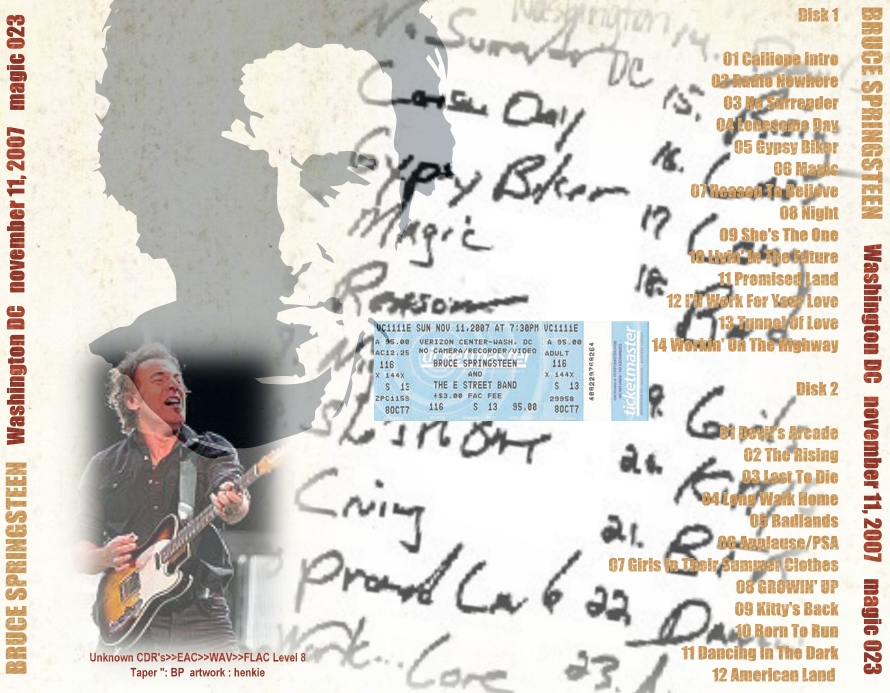 BRUCE SPRINGSTEEN Washington DC november 11, 2007 magic 023
Washington
N. Surrender
DC
Day
15.
Gypsy Biker
16.
Magic
17
Reason
18.
She's the One
20.
Living
21.
Promised Land
22.
Work...
Love
23.
VC1111E SUN NOV 11,2007 AT 7:30PM VC1111E
A 95.00 VERIZON CENTER-WASH. DC A 95.00
AC12.25 NO CAMERA/RECORDER/VIDEO ADULT
116 BRUCE SPRINGSTEEN 116
X 144X AND X 144X
S 13 THE E STREET BAND S 13
ZPC115S +$3.00 FAC FEE 29958
8OCT7 116 S 13 95.00 8OCT7
ticketmaster
Unknown CDR's>>EAC>>WAV>>FLAC Level 8
Taper ": BP artwork : henkie
Disk 1
01 Calliope Intro
02 Radio Nowhere
03 No Surrender
04 Lonesome Day
05 Gypsy Biker
06 Magic
07 Reason To Believe
08 Night
09 She's The One
10 Livin' In The Future
11 Promised Land
12 I'll Work For Your Love
13 Tunnel Of Love
14 Workin' On The Highway
Disk 2
01 Devil's Arcade
02 The Rising
03 Last To Die
04 Long Walk Home
05 Badlands
06 Applause/PSA
07 Girls In Their Summer Clothes
08 GROWIN' UP
09 Kitty's Back
10 Born To Run
11 Dancing In The Dark
12 American Land
BRUCE SPRINGSTEEN Washington DC november 11, 2007 magic 023